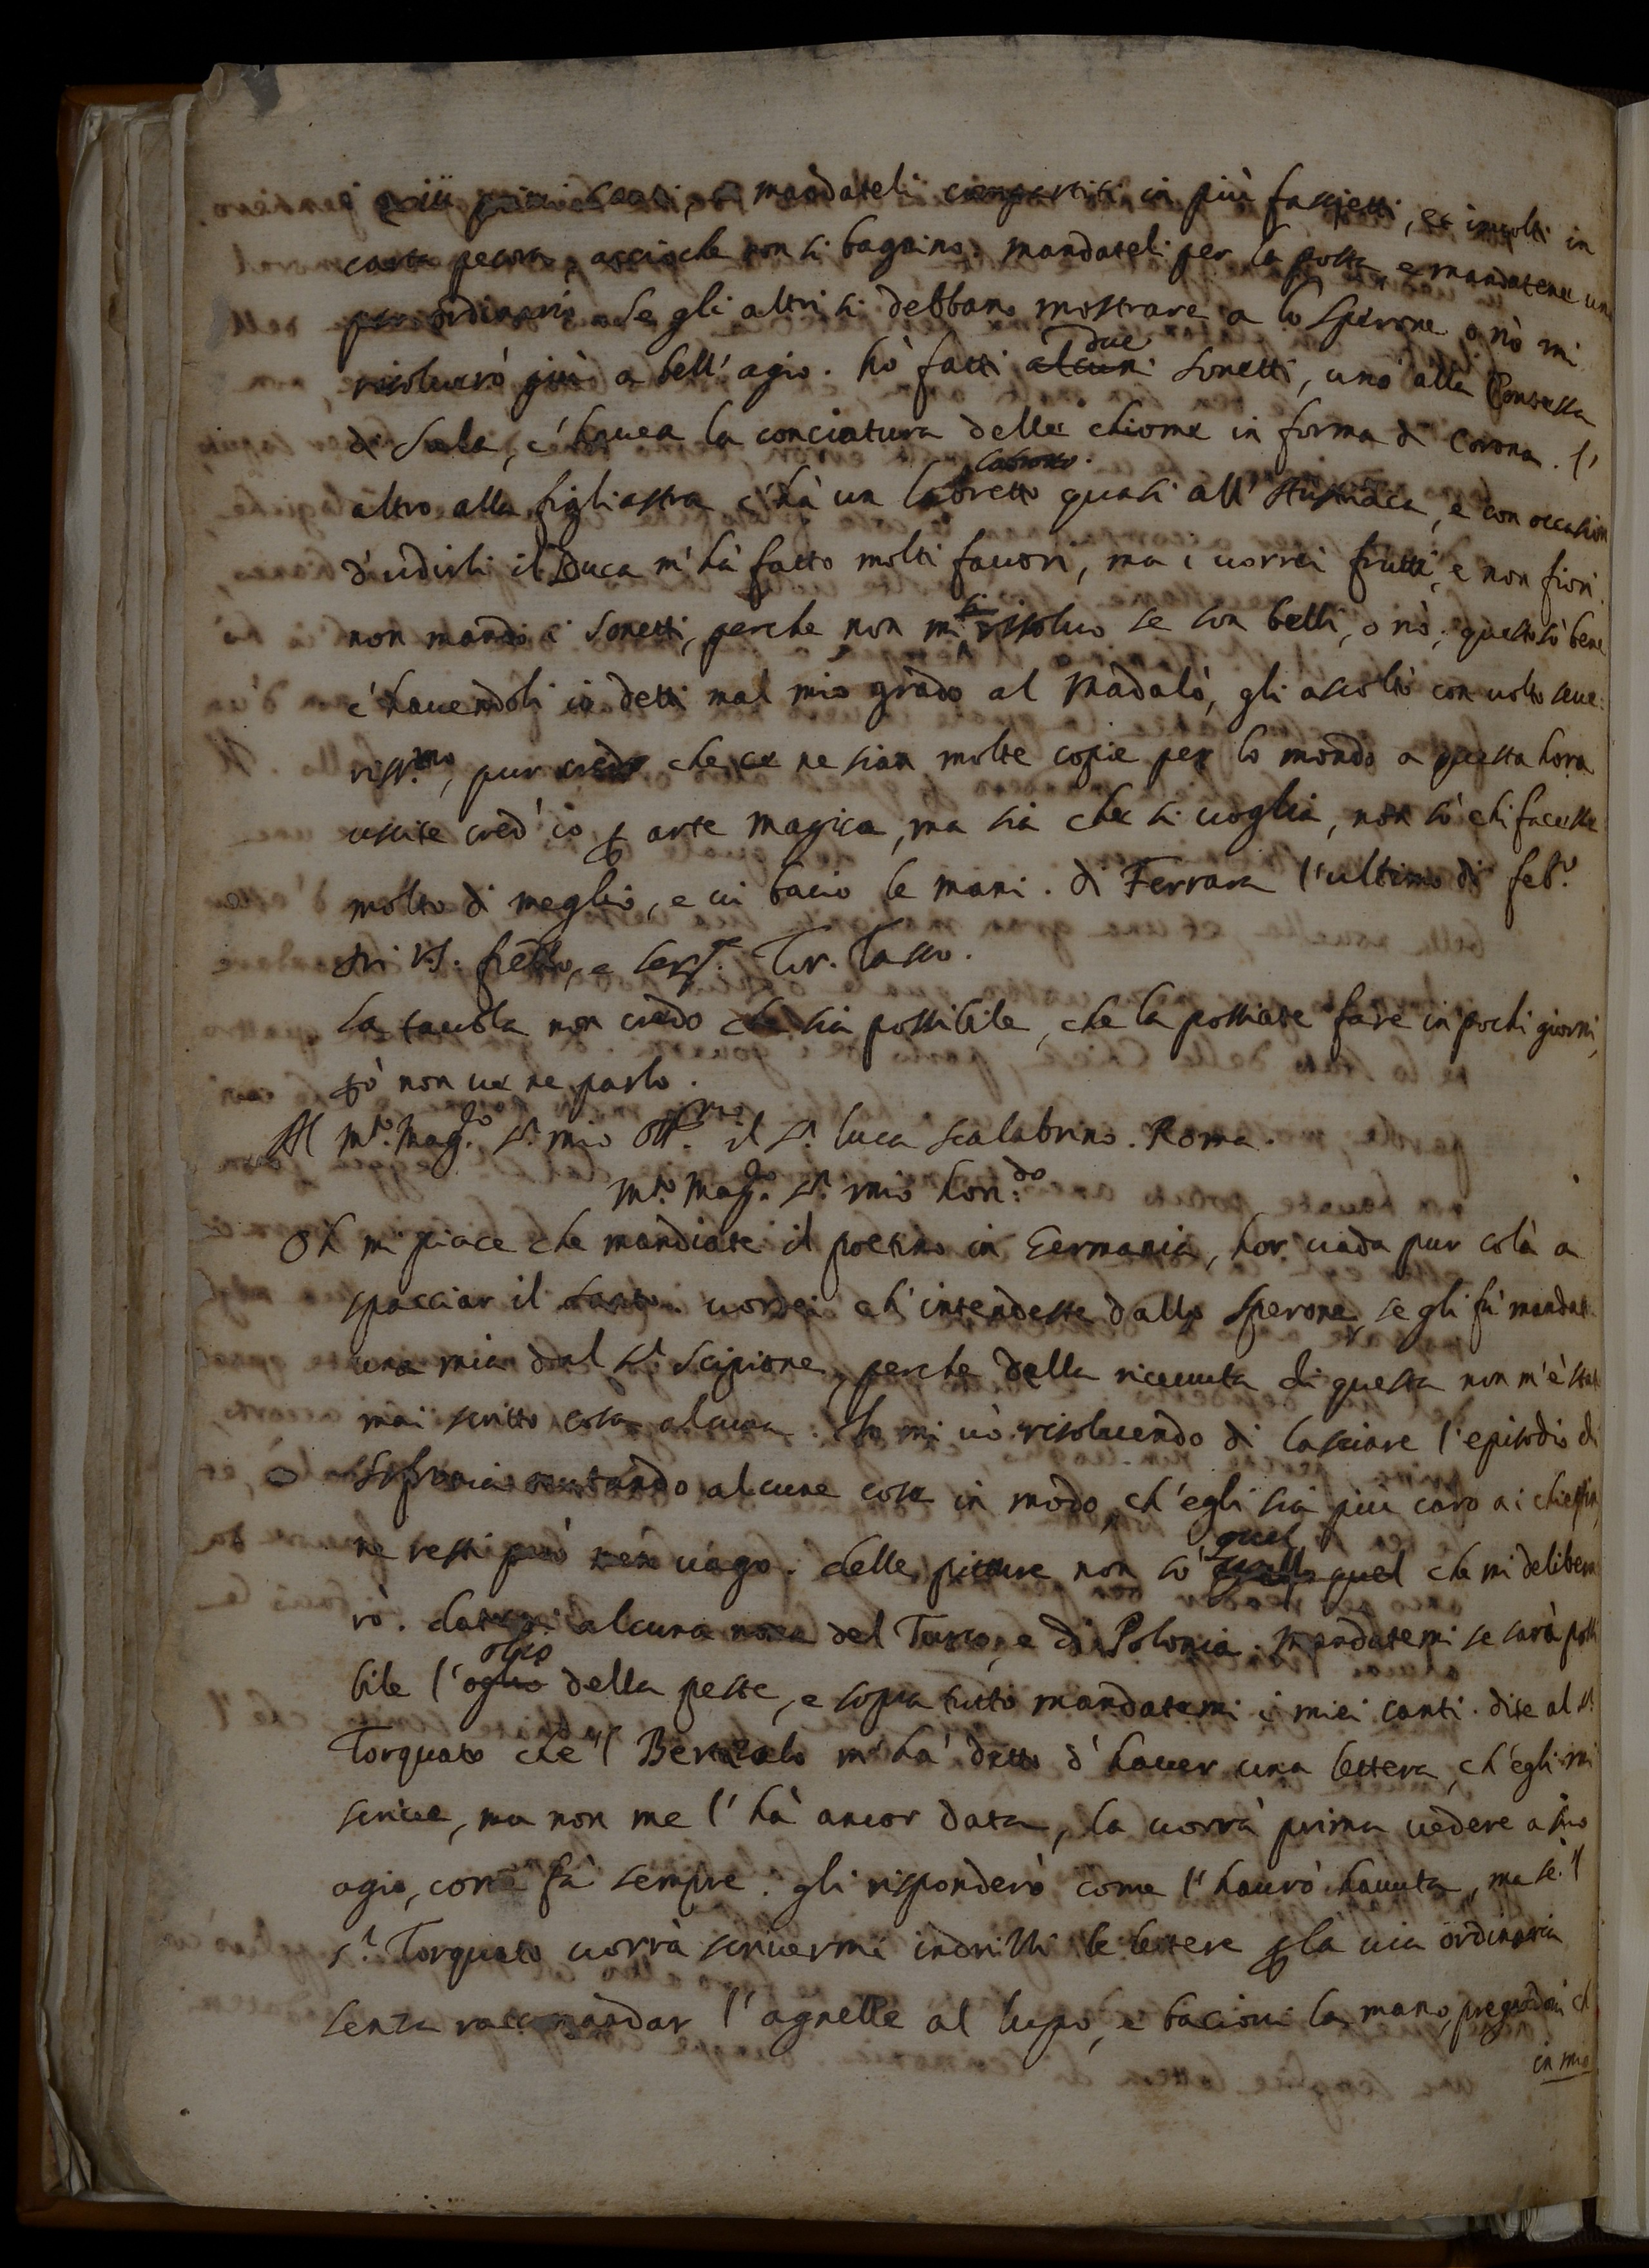 i più primi canti, e mandateli compartiti in più fascietti, et inuolti in
carta pecora, accioche non si bagnino. mandateli per la posta e mandatene un
per ordinario. Se gli altri si debbano mostrare a lo Sperone, o nò mi
risoluerò più a bell'agio. hò fatti alcuni due sonetti, uno alla Contessa
di Sala, c'hauea la conciatura delle chiome in forma di Corona. l'
altro alla figliastra c'hà un labretto labrotto quasi all'Austriaca, e con occasion
d'udirli il Duca m'hà fatto molti fauori, ma i uorrei frutti, e non fiori.
non mando i sonetti, perche non mi risoluo se son belli, o nò; questo sò bene
c'hauendoli io detti mal mio grado al Madalò, gli ascoltò con uolto seue=
riss.mo, pur credo che ce ne sian molte copie per lo mondo a questa hora
uscite cred'io per arte magica, ma sia che si uoglia, non sò chi facesse
molto di meglio, e ui bacio le mani. di Ferrara l'ultimo di feb.o
Di V.S. fr̃ello, e ser.re Tor. Tasso.
La tauola non credo che sia possibile, che la possiate fare in pochi giorni,
però non ue ne parlo.
Al m.to Mag.co s.r mio oss.mo il s.r Luca Scalabrino. Roma.
M.to Mag.co s.r mio hon.do
Oh mi piace che mandiate il poetino in Germania, hor uada pur colà a
spacciar il . uorrei ch'intendeste dallo Sperone, se gli fù mandat
una mia dal s.r Scipione, perche della riceuuta di questa non m'è stat
mai scritto cosa alcuna. Io mi uò risoluendo di lasciare l'episodio di
Sofronia mutando alcune cose in modo, ch'egli sia più caro a i chiettini,
ne resti però men uago. delle pitture non sò quello quel quel che mi delibere
rò. datemi alcuna noua del Turco, e di Polonia. mandatemi se sarà possi
bile l'oglio olio della peste, e sopra tutto mandatemi i miei canti. dite al s.r
Torquato che'l Bertzalo m'hà detto d'hauer una lettera, ch'egli mi
scriue, ma non me l'hà ancor data, la uorrà prima uedere a suo
agio, come fà sempre. gli risponderò come l'haurò hauuta, ma se'l
s.r Torquato uorrà scriuermi indrizzi le lettere per la uia ordinaria
senza raccomandar l'agnelle al lupo, e baciou la mano, pregandoui ch
in mio